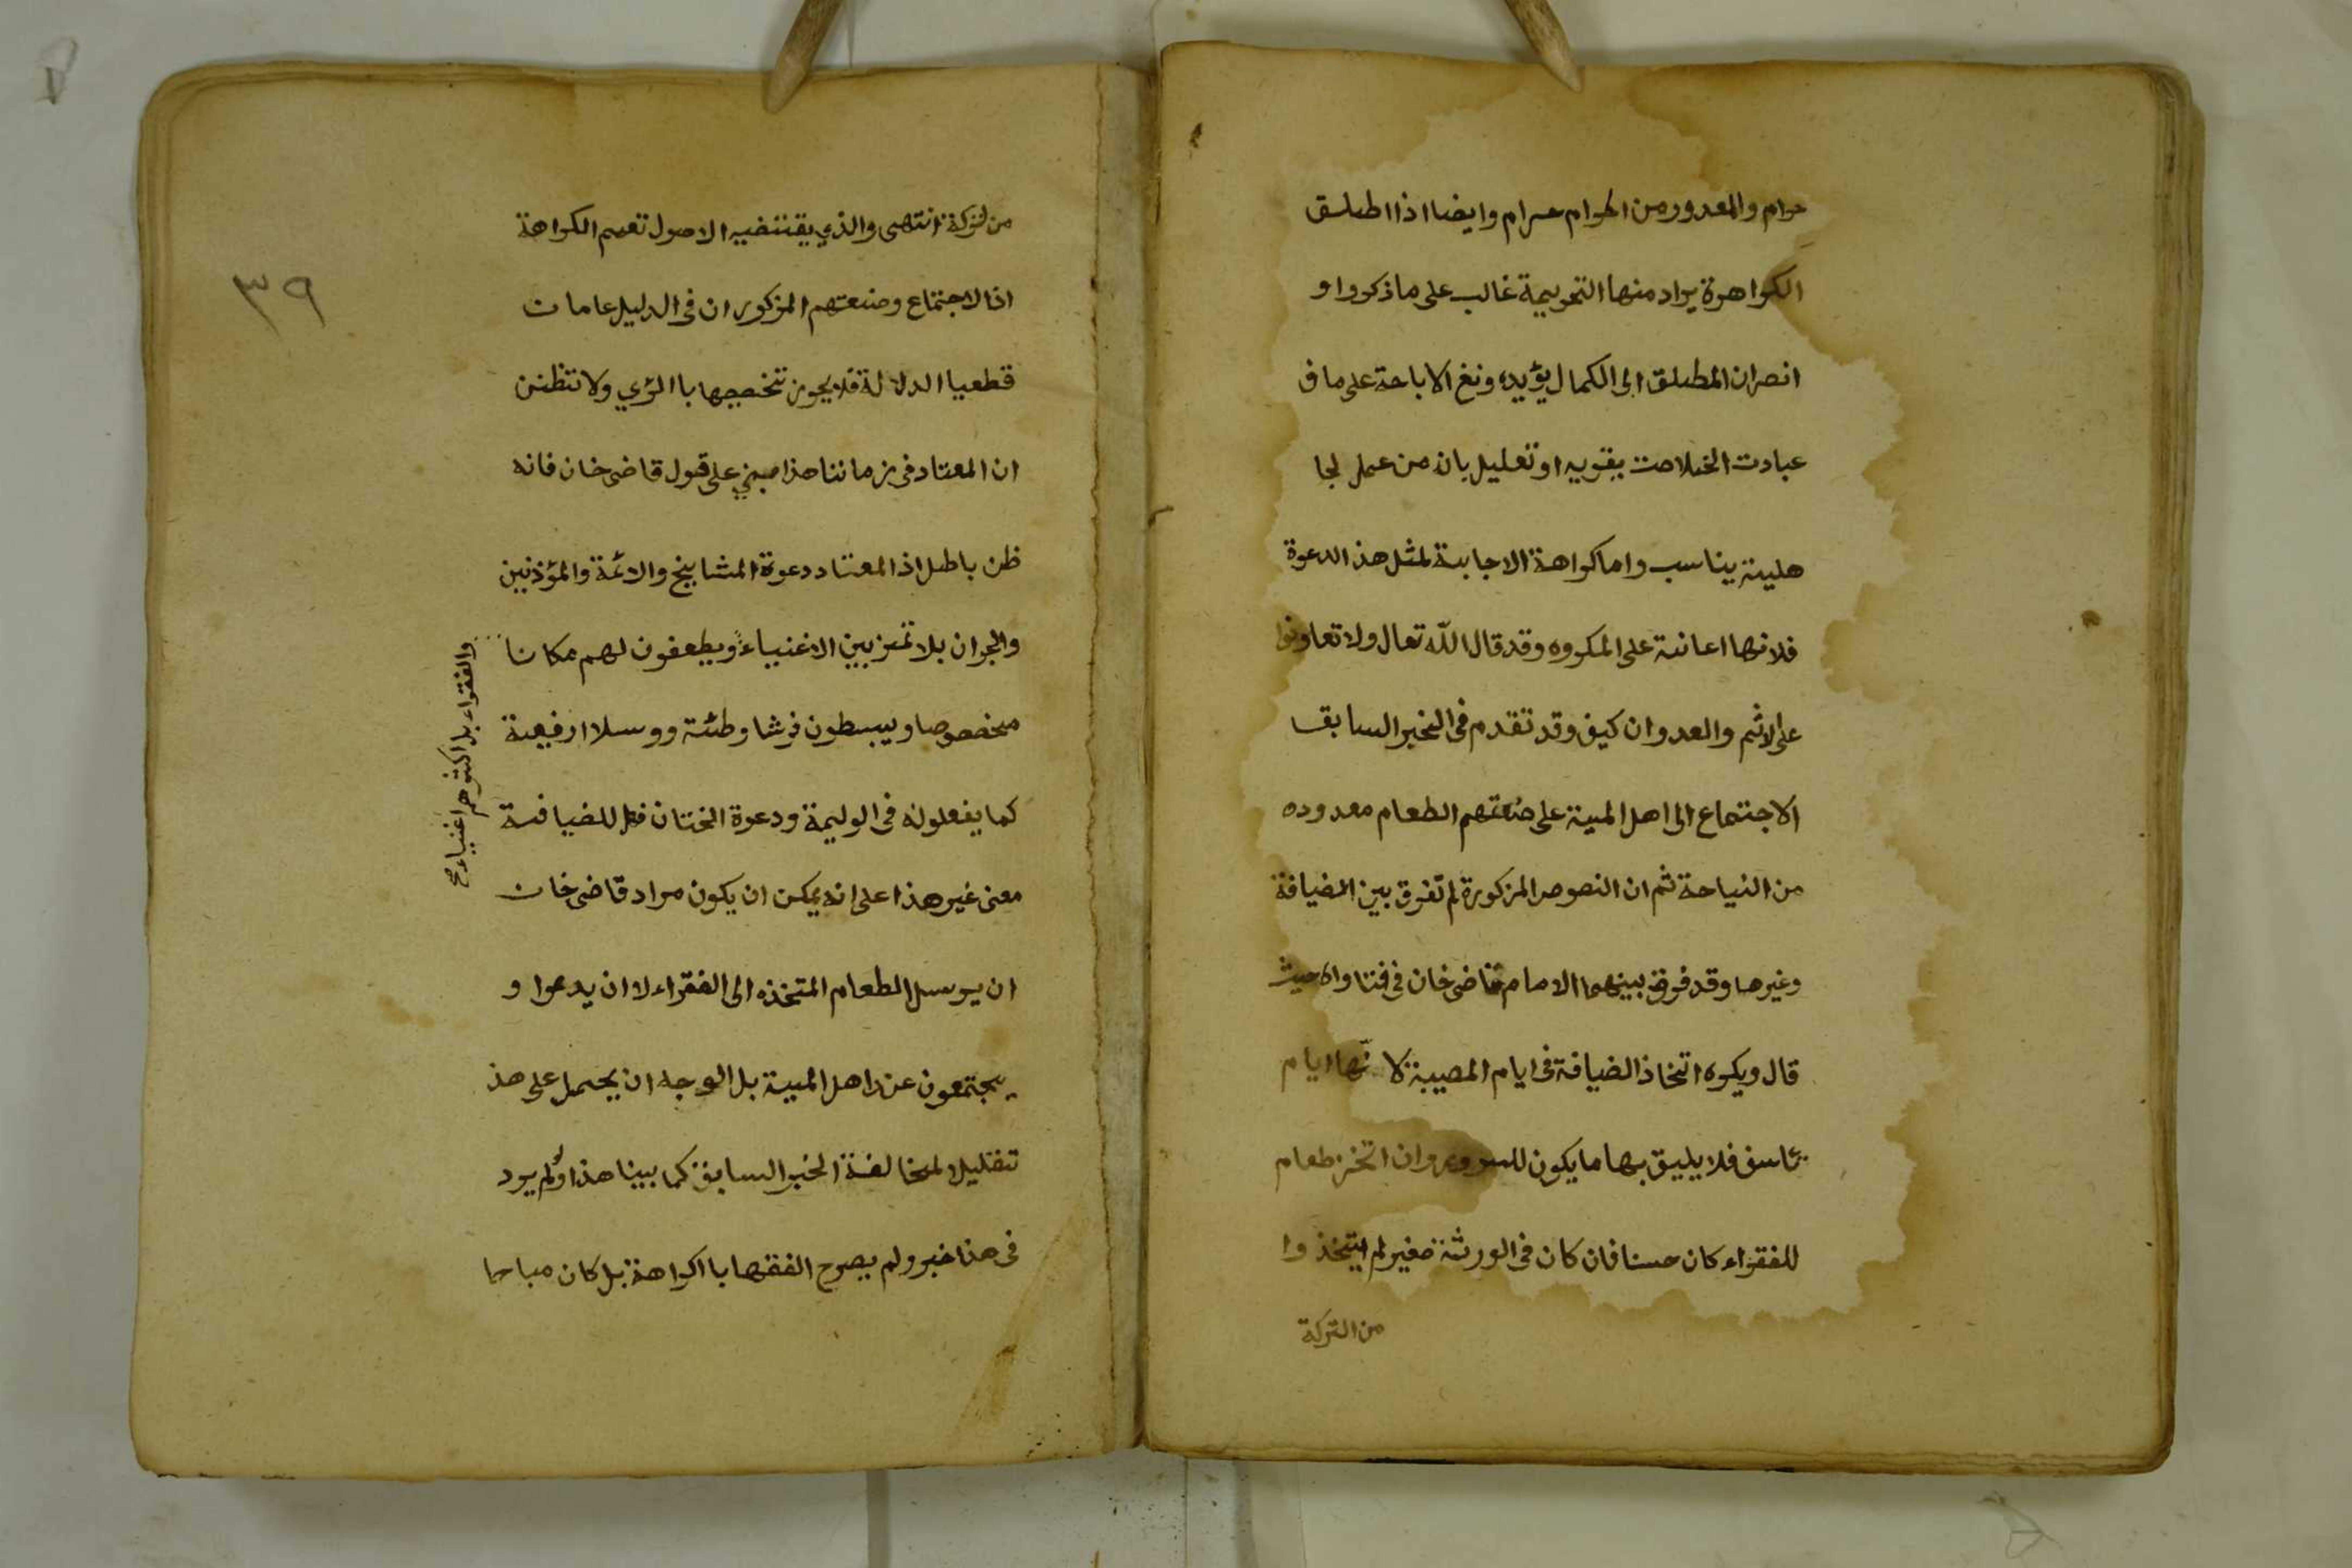 حرام والمعدود من الحرام حرام وايضا اذا اطلق
الكراهرة يراد منها التحريمة غالب على ما ذكروا و
انصران المطلق الى الكمال يؤيده ونغ الاباحة على ما فى
عبادت الخلاصت يقويه او تعليل بان من عمل لجا
هلية يناسب واما كراهة الاجابة لمثل هذ الدعوة
فلانها اعانة على المكروه وقد قال الله تعال ولا تعاونوا
على الاثم والعدوان كيف وقد تقدم فى الخبر السابقا
الاجتماع الى اهل الميت على صنعتهم الطعام معدوده
من النياحة ثم ان النصوص المزكورة لم تفرق بين الضيافة
وغيرها وقد فرق بينهما الامام قاضى خان فى فتاواه حيث
قال ويكره اتخاذ الضيافة فى ايام المصيبة لانّها ايام
تاسف فلا يليق بها ما يكون للسرور وان اتخذ طعام
للفقراء كان حسنا فان كان فى الورثة صغير لم يتخذوا
من التركة
٣٩
من لتركة انتهى والذي يقتضيه الاصول تعميم الكراهة
اذ الاجتماع وصنعتهم المزكوران فى الدليل عامان
قطعيا الدلالة فلا يجوز تخصيصها باالرئي ولا تظنن
ان المعتاد فى زماننا هذا مبني على قول قاضى خان فانه
ظن باطل اذ المعتاد دعوة المشايخ والائمة والمؤذنين
والجران بلا تمز بين الاغنياء ويطعفون لهم مكانا
والفقراء بل اكثرهم اغنياء صح
مخصوصا ويبسطون فرشا وطئة ووسلا ارفيعة
كما يفعلونه فى الوليمة ودعوة الختان فهل للضيافة
معنى غير هذا على انه يمكن ان يكون مراد قاضى خان
ان يرسل الطعام المتخذه الى الفقراء لا ان يدعوا و
يجتمعون عند اهل الميت بل الوجه ان يحمل على هذ
تقليلا لمخالفة الخبر السابق كما بينا هذا ولم يرد
فى هذا خبر ولم يصرح الفقها باالكراهة بل كان مباحا